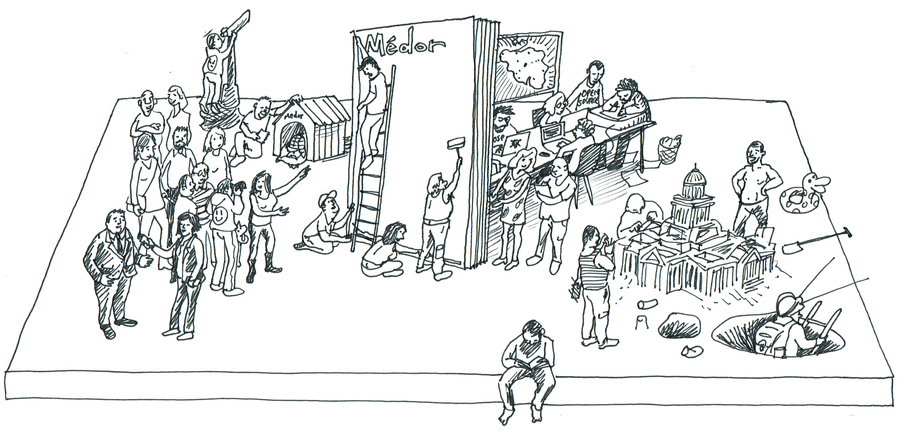 Médor
Médor
OPEN
SOURCE